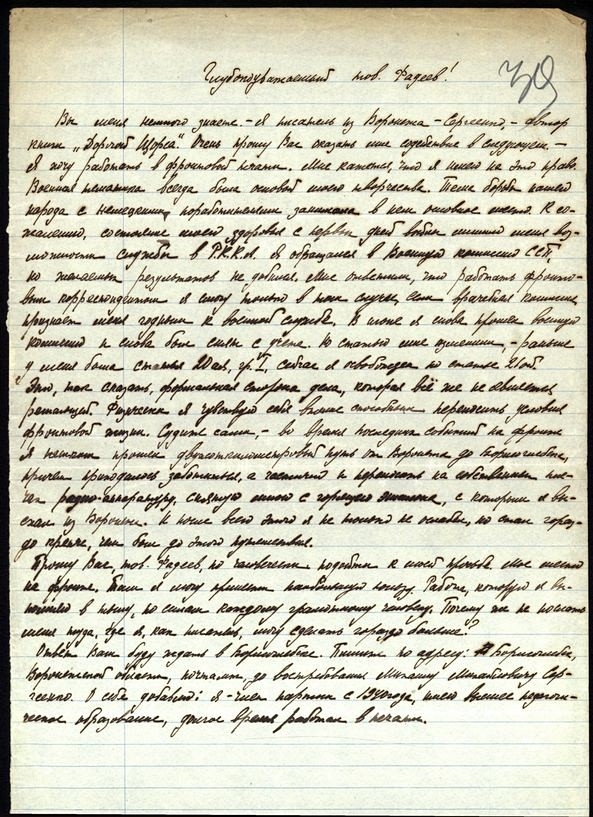 Глубокоуважаемый тов. Фадеев!
39
Вы меня немного знаете, – я писатель из Воронежа – Сергеенко, – автор
книги „Дорогой Щорса". Очень прошу Вас оказать мне содействие в следующем, –
я хочу работать в фронтовой печати. Мне кажется, что я имею на это право.
Военная тематика всегда была основой моего творчества. Тема борьбы нашего
народа с немецкими поработителями занимала в нем основное место. К со-
жалению, состояние моего здоровья с первых дней войны лишило меня воз-
можности службы в Р.К.К.А. Я обращался в Военную комиссию ССП,
но желаемых результатов не добился. Мне ответили, что работать фронто-
вым корреспондентом я смогу только в том случае, если врачебная комиссия
признает меня годным к военной службе. В июне я снова прошел военную
комиссию и снова был снят с учета. Но статью мне изменили, – раньше
у меня была статья 20-ая, гр. I, сейчас я освобожден по статье 21 об.
Это, так сказать, формальная сторона дела, которая всё же не является
решающей. Физически я чувствую себя вполне способным переносить условия
фронтовой жизни. Судите сами, – во время последних событий на фронте
я пешком прошел двухсоткилометровый путь от Воронежа до Борисоглебска,
причем приходилось заботиться, а частично и переносить на собственных пле-
чах радио-аппаратуру, снятую мною с горящего эшелона, с которым я вы-
ехал из Воронежа. И после всего этого я не только не ослабел, но стал гораз-
до крепче, чем был до этого путешествия.
Прошу Вас, тов. Фадеев, по человечески подойти к моей просьбе. Мое место
на фронте. Там я могу принести наибольшую пользу. Работа, которую я вы-
полняю в тылу, по силам каждому грамотному человеку. Почему же не послать
меня туда, где я, как писатель, могу сделать гораздо больше?
Ответ Ваш буду ждать в Борисоглебске. Пишите по адресу: Борисоглебск,
Воронежской области, почтамт, до востребования Михаилу Михайловичу Сер-
геенко. О себе добавлю: я – член партии с 1940 года, имею высшее педагоги-
ческое образование, долгое время работал в печати.